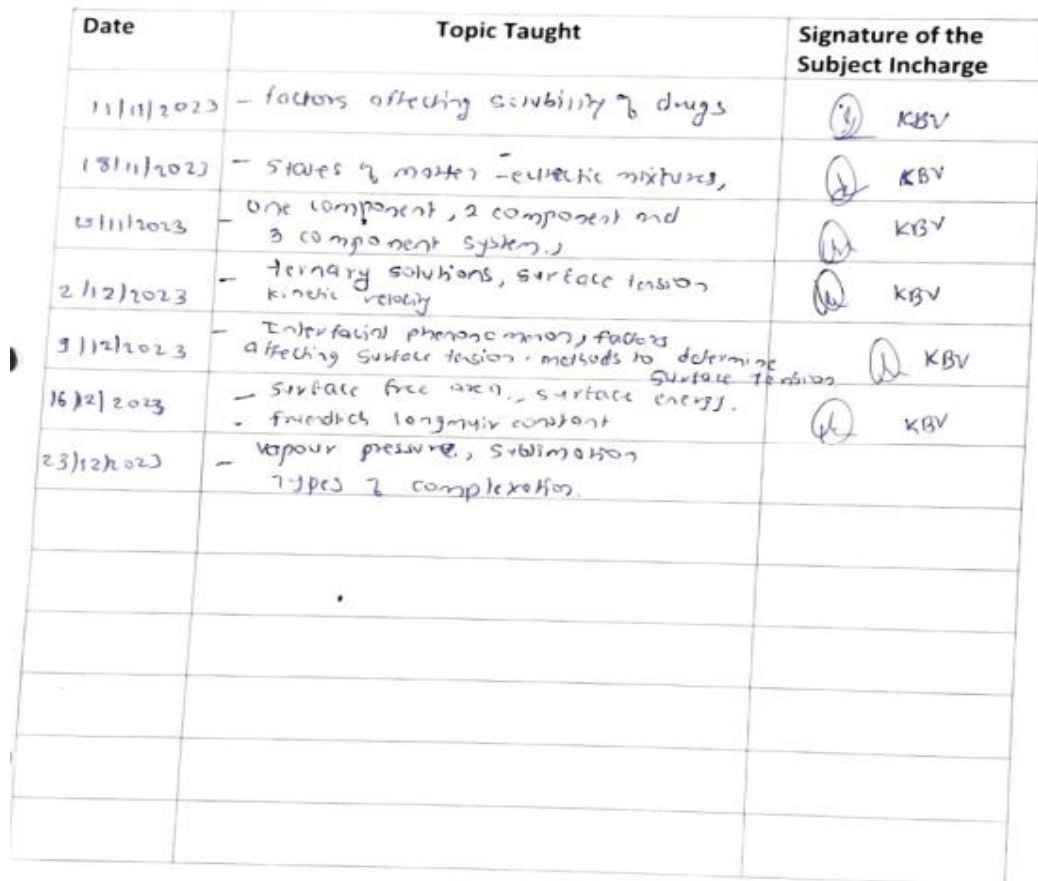 Date Topic Taught Signature of the
Subject Incharge
11/11/2023 - factors affecting solubility of drugs KBV
18/11/2023 - States of matter - eutectic mixtures, KBV
25/11/2023 - one component, 2 component and KBV
3 component system.,
2/12/2023 - ternary solutions, surface tension KBV
kinetic velocity
9/12/2023 - Interfacial phenoncmenon, factors KBV
affecting surface tension. methods to determine
surface tension
16/12/2023 - surface free area., surface energy. KBV
- friendrich longmuir constant
23/12/2023 - vapour pressure, sublimation
Types of complexation.